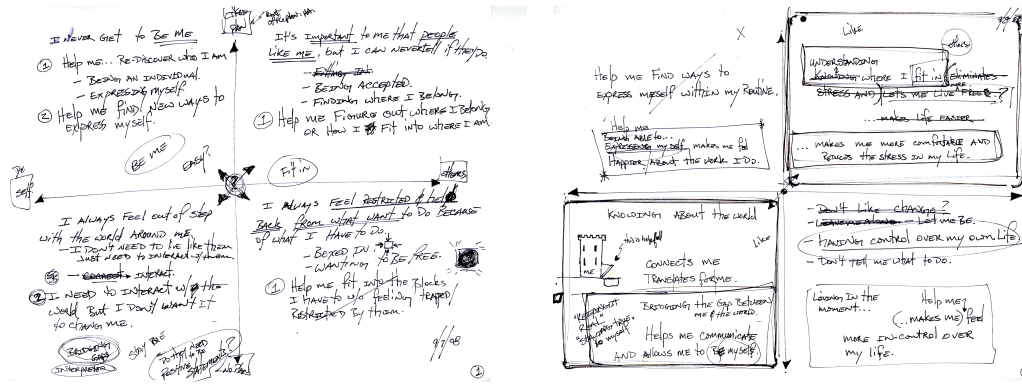 I NEVER GET TO BE ME
① HELP ME... RE-DISCOVER WHO I AM
- BEING AN INDIVIDUAL.
- EXPRESSING MYSELF.
② HELP ME FIND NEW WAYS TO
EXPRESS MYSELF.
BE ME
EASY?
IT'S IMPORTANT TO ME THAT PEOPLE
LIKE ME, BUT I CAN NEVER TELL IF THEY DO.
- FITTING IN
- BEING ACCEPTED.
- FINDING WHERE I BELONG.
① HELP ME FIGURE OUT WHERE I BELONG
OR HOW I FIT INTO WHERE I AM.
FIT IN
SELF
OTHERS
I ALWAYS FEEL OUT OF STEP
WITH THE WORLD AROUND ME
- I DON'T NEED TO BE LIKE THEM
JUST NEED TO INTERACT W/THEM.
- CORRECT INTERACT.
② I NEED TO INTERACT W/ THE
WORLD BUT I DON'T WANT IT
TO CHANGE ME.
BRIDGING
GAPS
INTERPRETER
DO THEY NEED
TO BE
POSITIVE
STATEMENTS?
I ALWAYS FEEL RESTRICTED & HELD
BACK FROM WHAT WANT TO DO BECAUSE
OF WHAT I HAVE TO DO.
- BOXED IN
- WANTING TO BE FREE.
① HELP ME FIT INTO THE BLOCKS
I HAVE TO W/O FEELING TRAPED/
RESTRICTED BY THEM.
①
X
HELP ME FIND WAYS TO
EXPRESS MYSELF WITHIN MY ROUTINE.
HELP ME
BEING ABLE TO...
EXPRESSING MYSELF MAKES ME FEEL
HAPPIER ABOUT THE WORK I DO.
LIKE
OTHERS
UNDERSTANDING
KNOWING WHERE I FIT IN ELIMINATES
STRESS AND LETS ME LIVE FREER..?
...MAKES LIFE EASIER
...MAKES ME MORE COMFORTABLE AND
REDUCES THE STRESS IN MY LIFE.
KNOWING ABOUT THE WORLD
THIS IS HELPFUL
LIKE
ME
CONNECTS ME
TRANSLATES FOR ME.
BRIDGING THE GAP BETWEEN
ME & THE WORLD.
HELPS ME COMMUNICATE
AND ALLOWS ME TO BE MYSELF
"KEEPING IT
REAL"
MYSELF
- DON'T LIKE CHANGE?
- LEAVE ME ALONE - LET ME BE.
- HAVING CONTROL OVER MY OWN LIFE
- DON'T TELL ME WHAT TO DO.
LIVING IN THE
MOMENT...
HELP ME?
(..MAKES ME) FEEL
MORE IN-CONTROL OVER
MY LIFE.